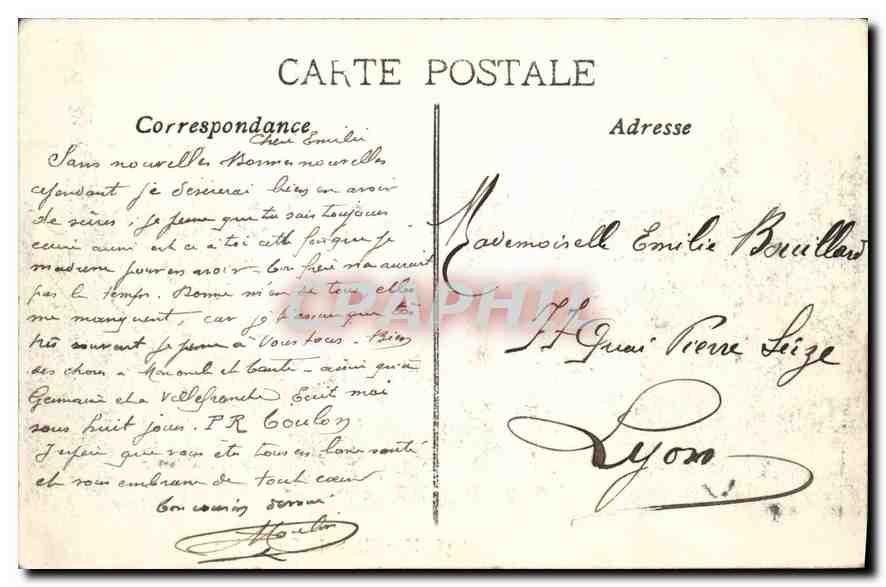 CARTE POSTALE
Correspondance
Adresse
Chère Emilie
Sans nouvelles Bonnes nouvelles
cependant je désirerai bien en avoir
de sûres, je pense que tu sais toujours
aussi est ce à toi cette fois que je
pour en avoir Ton frère n'a aurait
pas le temps. Donne de tous elles
me manquent, car je t'assure que
très souvent je pense à Vous tous. Bien
des choses à et Tante ainsi qu'à
Germaine et a Villefranche Ecrit moi
sous huit jours. P R Toulon
J'espère que vous êtes tous en bonne santé
et vous embrasse de tout coeur
Ton cousin dévoué
Moulin
Mademoiselle Emilie Bouillard
77 Quai Pierre Seize
Lyon
CPAPHIL